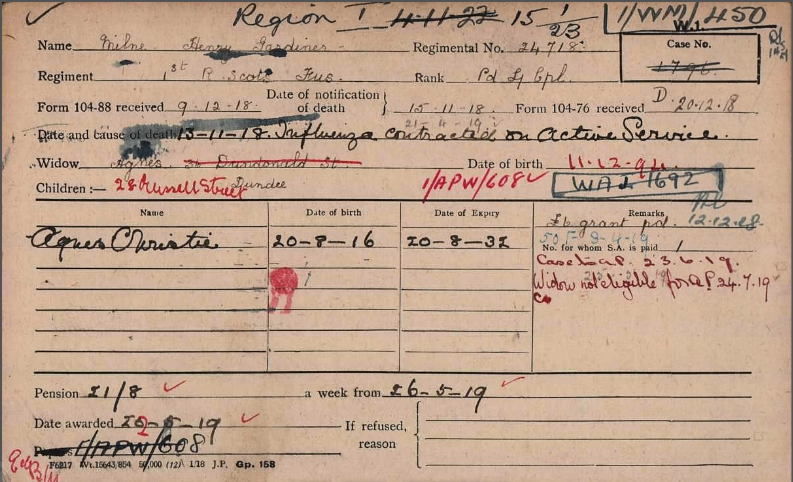 Region I 4-11-22 15 1/23 1/WM/450
W.1.
Name Milne Henry Gardiner Regimental No. 24718
Case No.
1796
Regiment 1st R. Scots Fus. Rank Pd L/Cpl.
Form 104-88 received 9-12-18. Date of notification of death 15-11-18. Form 104-76 received D 20.12.18
21-4-19
Date and cause of death 13-11-18. Influenza contracted on Active Service.
Widow Agnes Dundonald St. Date of birth 11-12-94.
Children :— 28 Russell Street Dundee 1/APW/608 WA1 1692
Name Date of birth Date of Expiry Remarks
£6 grant pd. 12.12.18.
Agnes Christie 20-8-16 20-8-32
No. for whom S.A. is paid 1
Case to A.P. 23.6.19.
Widow not eligible for A.P. 24.7.19
Pension 21/8 a week from 26-5-19
Date awarded 26-5-19 If refused, reason
1/APW/608
F6217 Wt.15643/854 50,000 (12) 1/18 J.P. Gp. 158